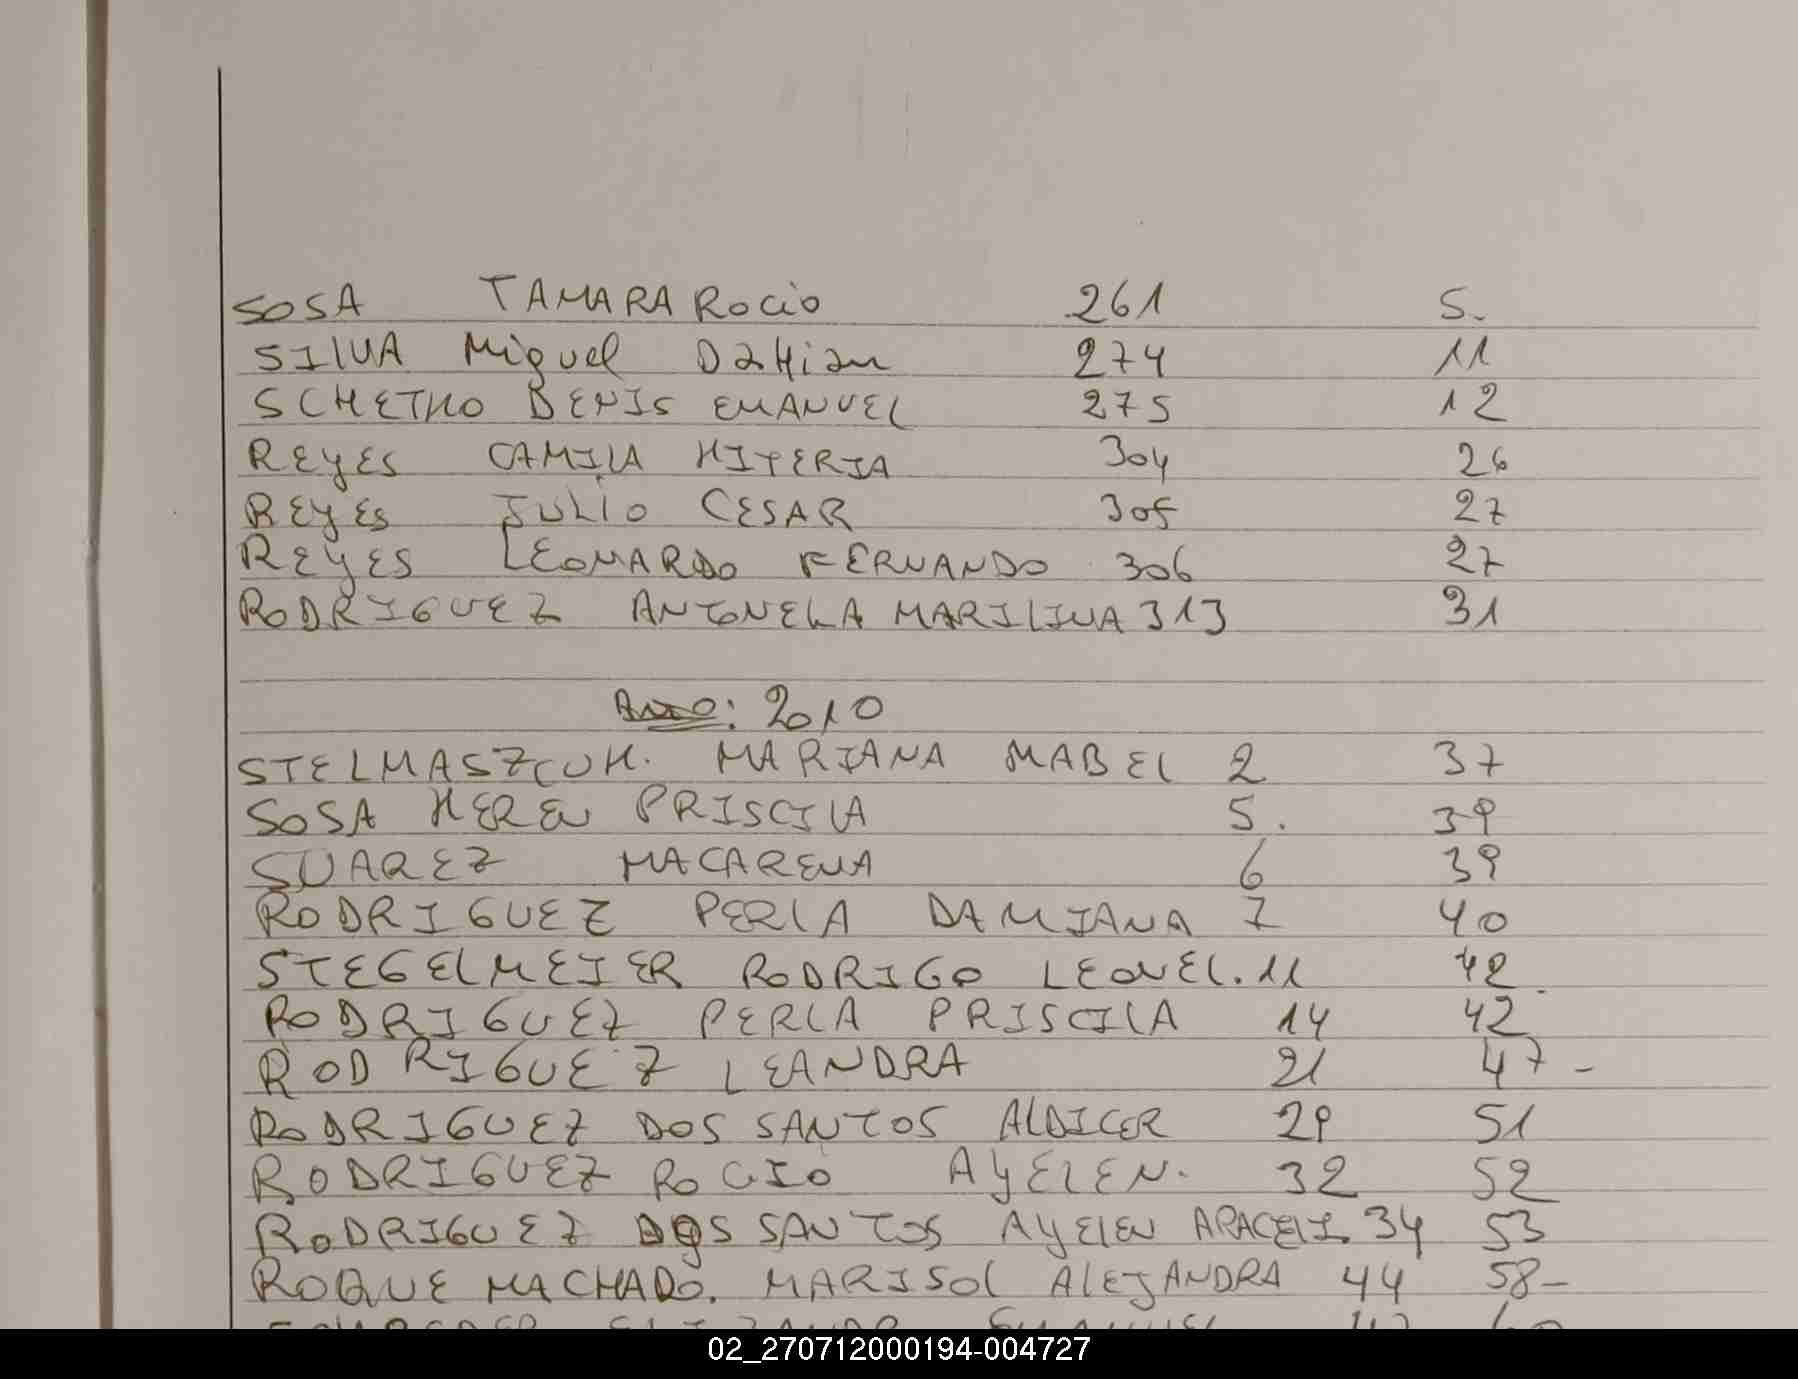 SOSA TAMARA Rocio 261 5.
SILVA Miguel DaHian 274 11
SCHETKO DENIS EMANUEL 275 12
REYES CAMILA 304 26
REYES JULIO CESAR 305 27
REYES LEONARDO FERNANDO 306 27
RODRIGUEZ ANTONELA MARILINA 313 31
: 2010
STELMASZCUK. MARIANA MABEL 2 37
SOSA KEREN PRISCILA 5. 39
SUAREZ MACARENA 6 39
RODRIGUEZ PERLA DAMIANA 7 40
STEGELMEIER RODRIGO LEONEL. 11 42
RODRIGUEZ PERLA PRISCILA 14 42
RODRIGUEZ LEANDRA 21 47 -
RODRIGUEZ DOS SANTOS ALDICER 29 51
RODRIGUEZ ROCIO AYELEN. 32 52
RODRIGUEZ DOS SANTOS AYELEN ARACELI. 34 53
ROQUE MACHADO. MARISOL ALEJANDRA 44 58-
02_270712000194-004727